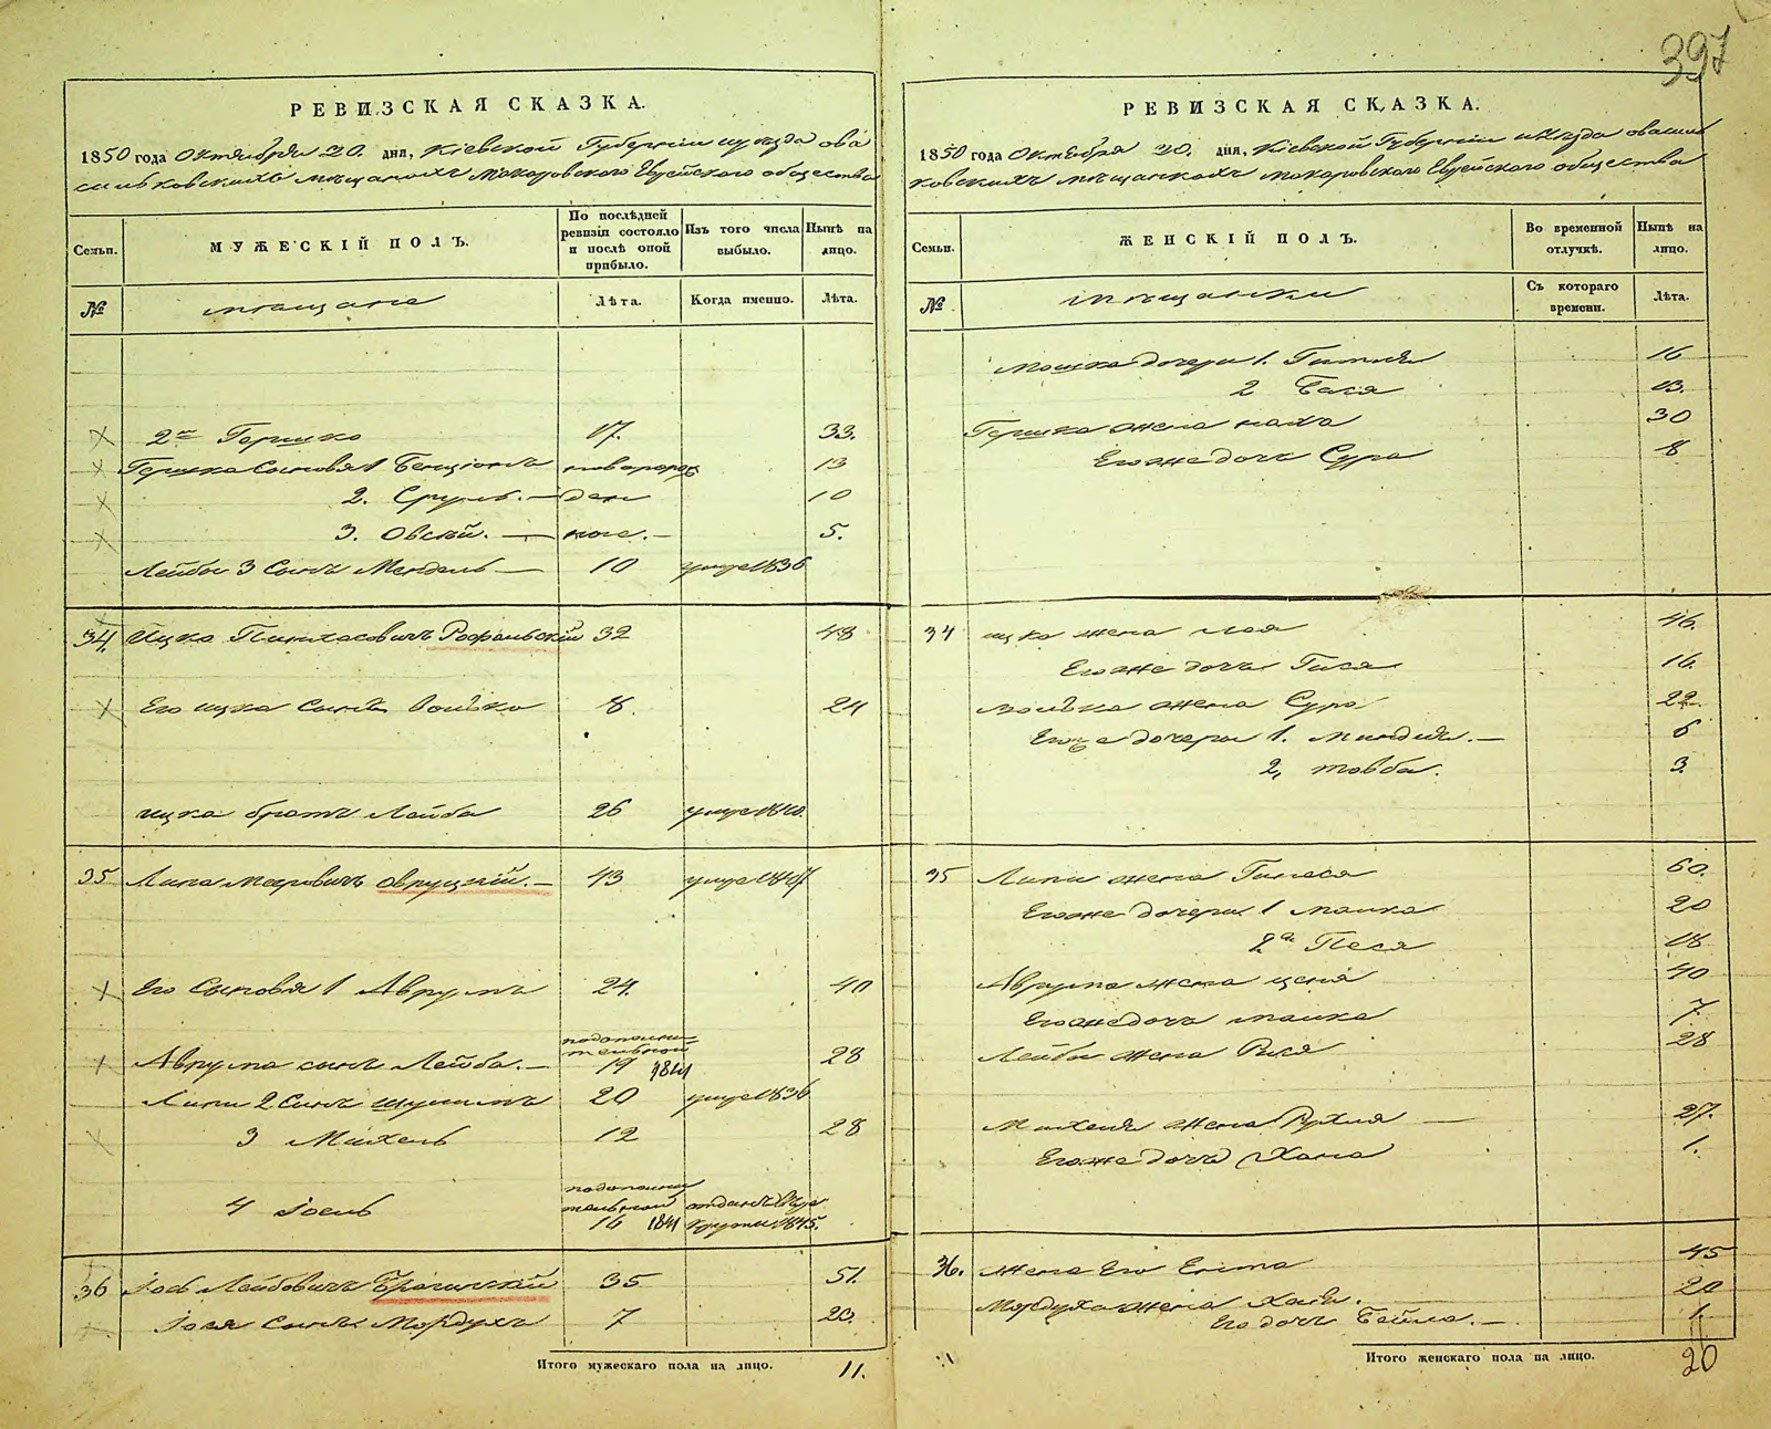 397
РЕВИЗСКАЯ СКАЗКА.
1850 года Октября 20. дня, Кіевской Губерніи и уѣзда о ва
сильковскихъ мѣщанахъ Макаровского Еврейского общества
Семьи.
МУЖЕСКІЙ ПОЛЪ.
По послѣдней ревизіи состояло и послѣ оной прибыло.
Изъ того числа выбыло.
Нынѣ на лицо.
№
мѣщане
Лѣта.
Когда именно.
Лѣта.
2й Гершко 17. 33.
Гершка Сыновья 1 Бенціонъ новорож 13
2. Сруль. — ден 10
3. Овсѣй. — ные. — 5.
Лейбы 3 Сынъ Мендель — 10 умре 1836
34. Ицко Пинхасовичъ Рафальскій 32 48
Его ицка Сынъ Волько 8. 24
ицка братъ Лейба 26 умре 1840.
35 Липа Меровичъ Овруцкій. — 43 умре
Его Сыновья 1 Аврумъ 24. 40
Аврума сынъ Лейба. — дополни
тельной
19 1841 28
Липи 2 Сынъ Шулимъ 20 умре 1836
3 Михель 12 28
4 Іосль дополни
тельной
16 1841 отданъ въ ре
круты 1845.
36 Іось Лейбовичъ Брагинскій 35 51.
Іося Сынъ Мордухъ 7 23.
Итого мужескаго пола на лицо. 11.
РЕВИЗСКАЯ СКАЗКА.
1850 года Октября 20. дня, Кіевской Губерніи и уѣзда о василь
ковскихъ мѣщанкахъ Макаровского Еврейского общества
Семьи.
ЖЕНСКІЙ ПОЛЪ.
Во временной отлучкѣ.
Нынѣ на лицо.
№
Мѣщанки
Съ котораго времени.
Лѣта.
Мошка дочери 1. Гитля 16
2 Бася 13.
Гершка жена хата 30
Его же дочь Сура 8
34 ицко жена Лея 46.
Его же дочь Гися 16.
Волька жена Сура 22.
Его же дочери 1. Миндля. — 6
2, товба. 3.
35 Липи жена Гинеся 60.
Его же дочери 1 малка 20
2я Песя 18
Аврума жена ценя 40
Его же дочь малка 7.
Лейбы жена Рися 28
Михеля жена Рухля — 27.
Его же дочь Хана 1.
36. жена Его Ента 45
Мордуха жена Хая. 20
Его дочь Бейла. — 1.
Итого женскаго пола на лицо. 20